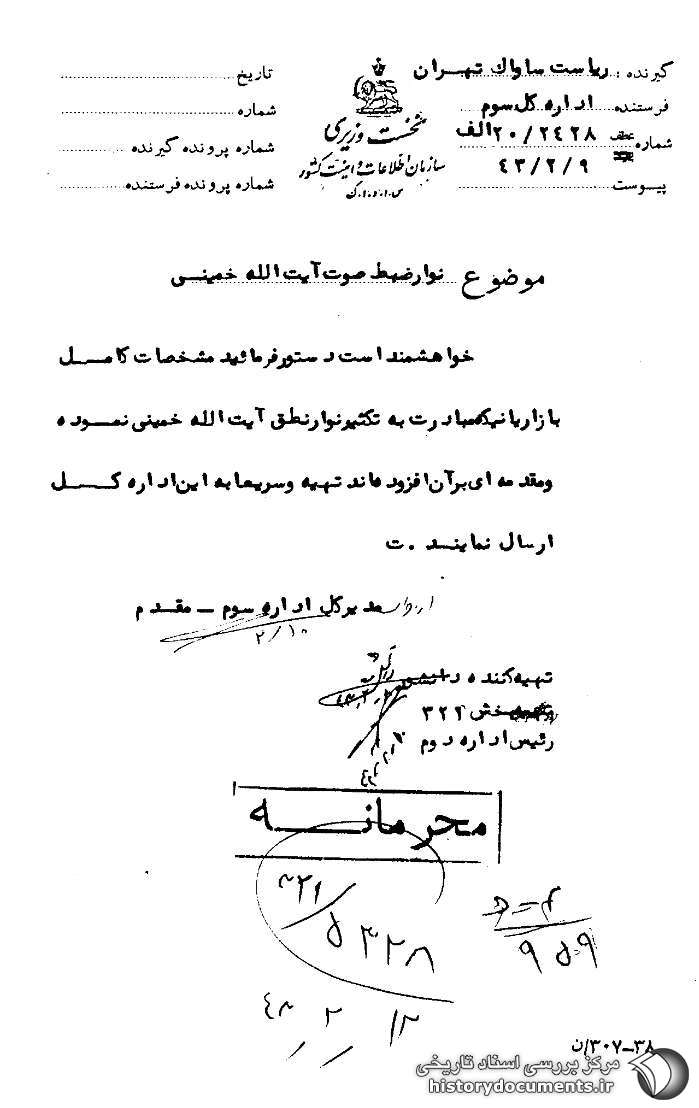 گیرنده : ریاست ساواک تهران
فرستنده اداره کل سوم
شماره عطف ۲۰/۲۴۲۸ الف
۴۳/۲/۹
پیوست
نخست وزیری
سازمان اطلاعات و امنیت کشور
س.ا.و.ا.ک
تاریخ
شماره
شماره پرونده گیرنده
شماره پرونده فرستنده
موضوع نوار ضبط صوت آیت الله خمینی
خواهشمند است دستور فرمائید مشخصات کامل
بازاریانیکه مبادرت به تکثیر نوار نطق آیت الله خمینی نموده
و مقدمه ای بر آن افزوده اند تهیه و سریعا به این اداره کل
ارسال نمایند . ت
مدیرکل اداره سوم – مقدم
۲/۱۰
تهیه کننده دانشور
بخش ۳۲۲
رئیس اداره دوم
محرمانه
۵۳۲۸
۴۳ ۲ ۱۲
۹۵۹
۳۸–۳۰۷/ن
مرکز بررسی اسناد تاریخی
historydocuments.ir